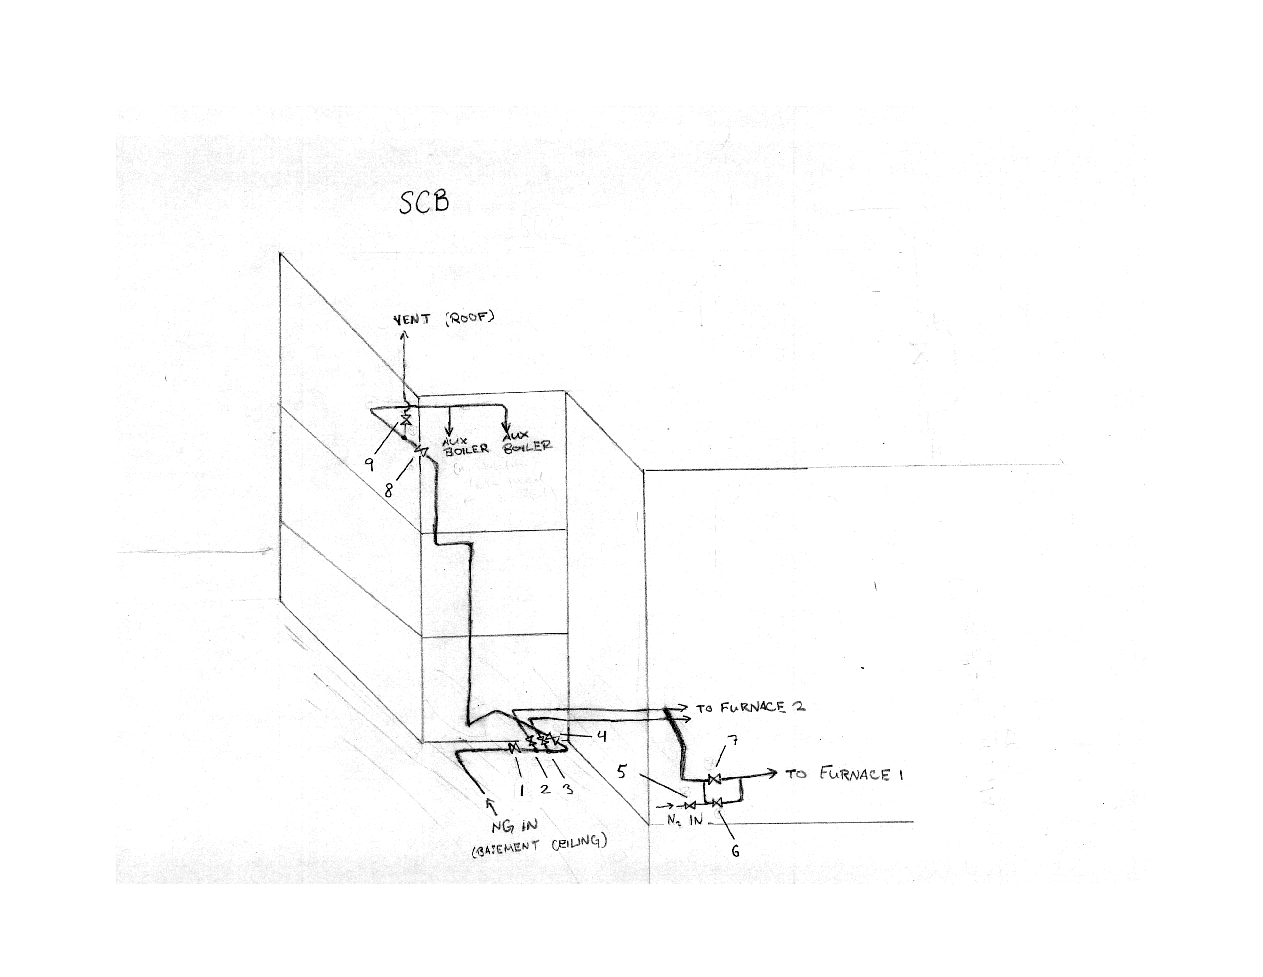 SCB
VENT (ROOF)
AUX
BOILER
AUX
BOILER
9
8
TO FURNACE 2
4
7
5
TO FURNACE 1
1
2
3
N2 IN
NG IN
(BASEMENT CEILING)
6